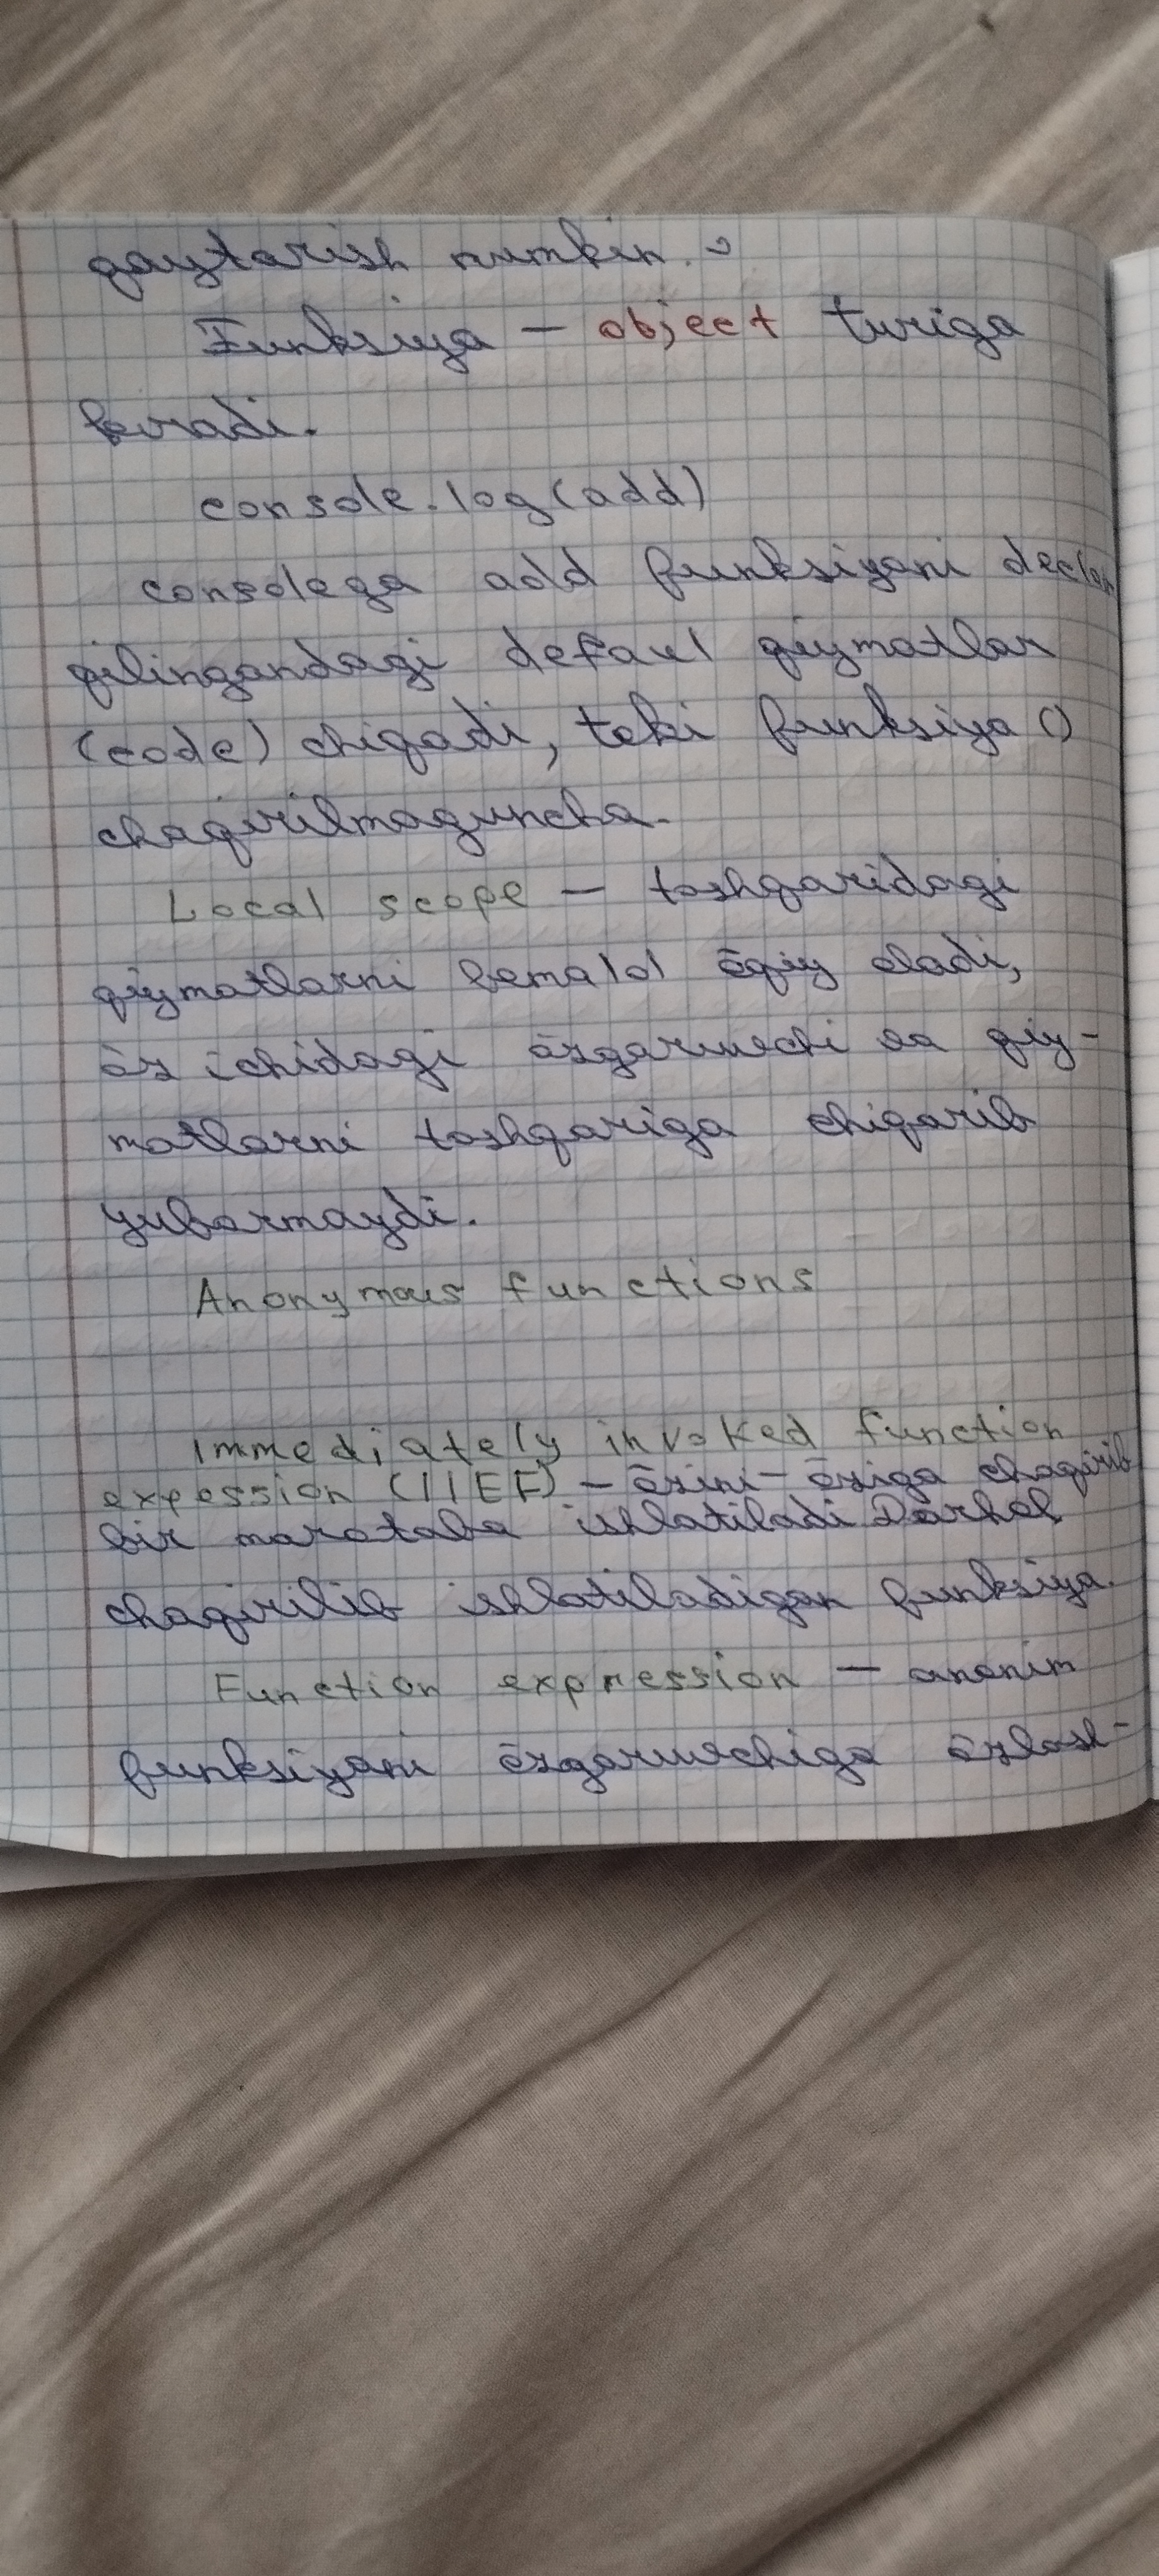 qaytarish mumkin.
Funksiya — object turiga
kiradi.
console.log(add)
consolega add funksiyani declar
qilingandagi defaul qiymatlar
(code) chiqadi, toki funksiya ()
chaqirilmaguncha.
Local scope — tashqaridagi
qiymatlarni bemalol ōqiy oladi,
ōz ichidagi ōzgaruvchi va qiy-
matlarni tashqariga chiqarib
yubormaydi.
Anonymous functions
Immediately invoked function
expession (IIEF) – ōzini-ōziga chaqirib
bir marotaba ishlatiladi Darhol
chaqirilib ishlatiladigan funksiya.
Function expression — anonim
funksiyani ōzgaruvchiga ōzlash-